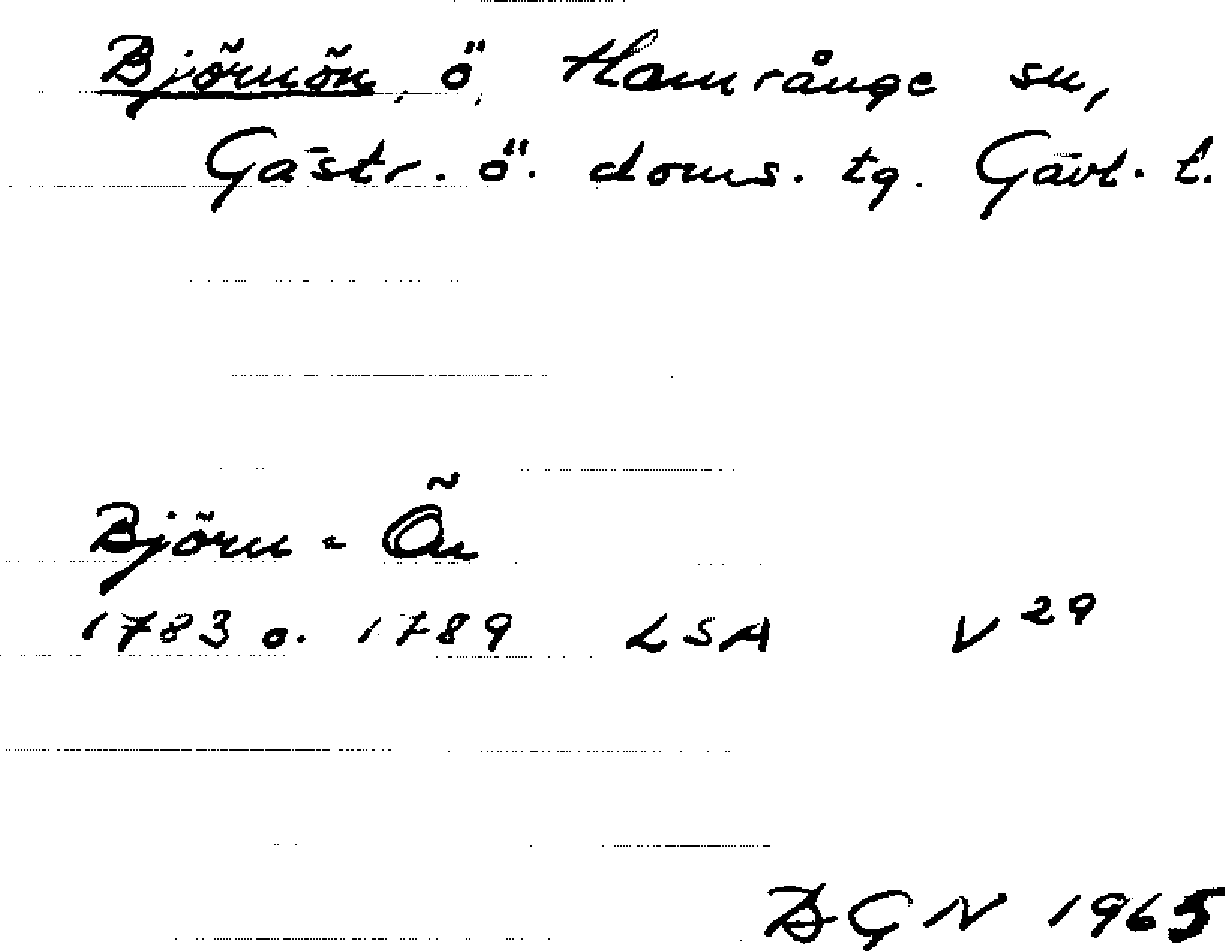 Björnön, ö, Hamrånge sn,
Gästr. ö. doms. tg. Gävl. l.
Björn-Ön
1783 o. 1789 LSA V29
BGN 1965